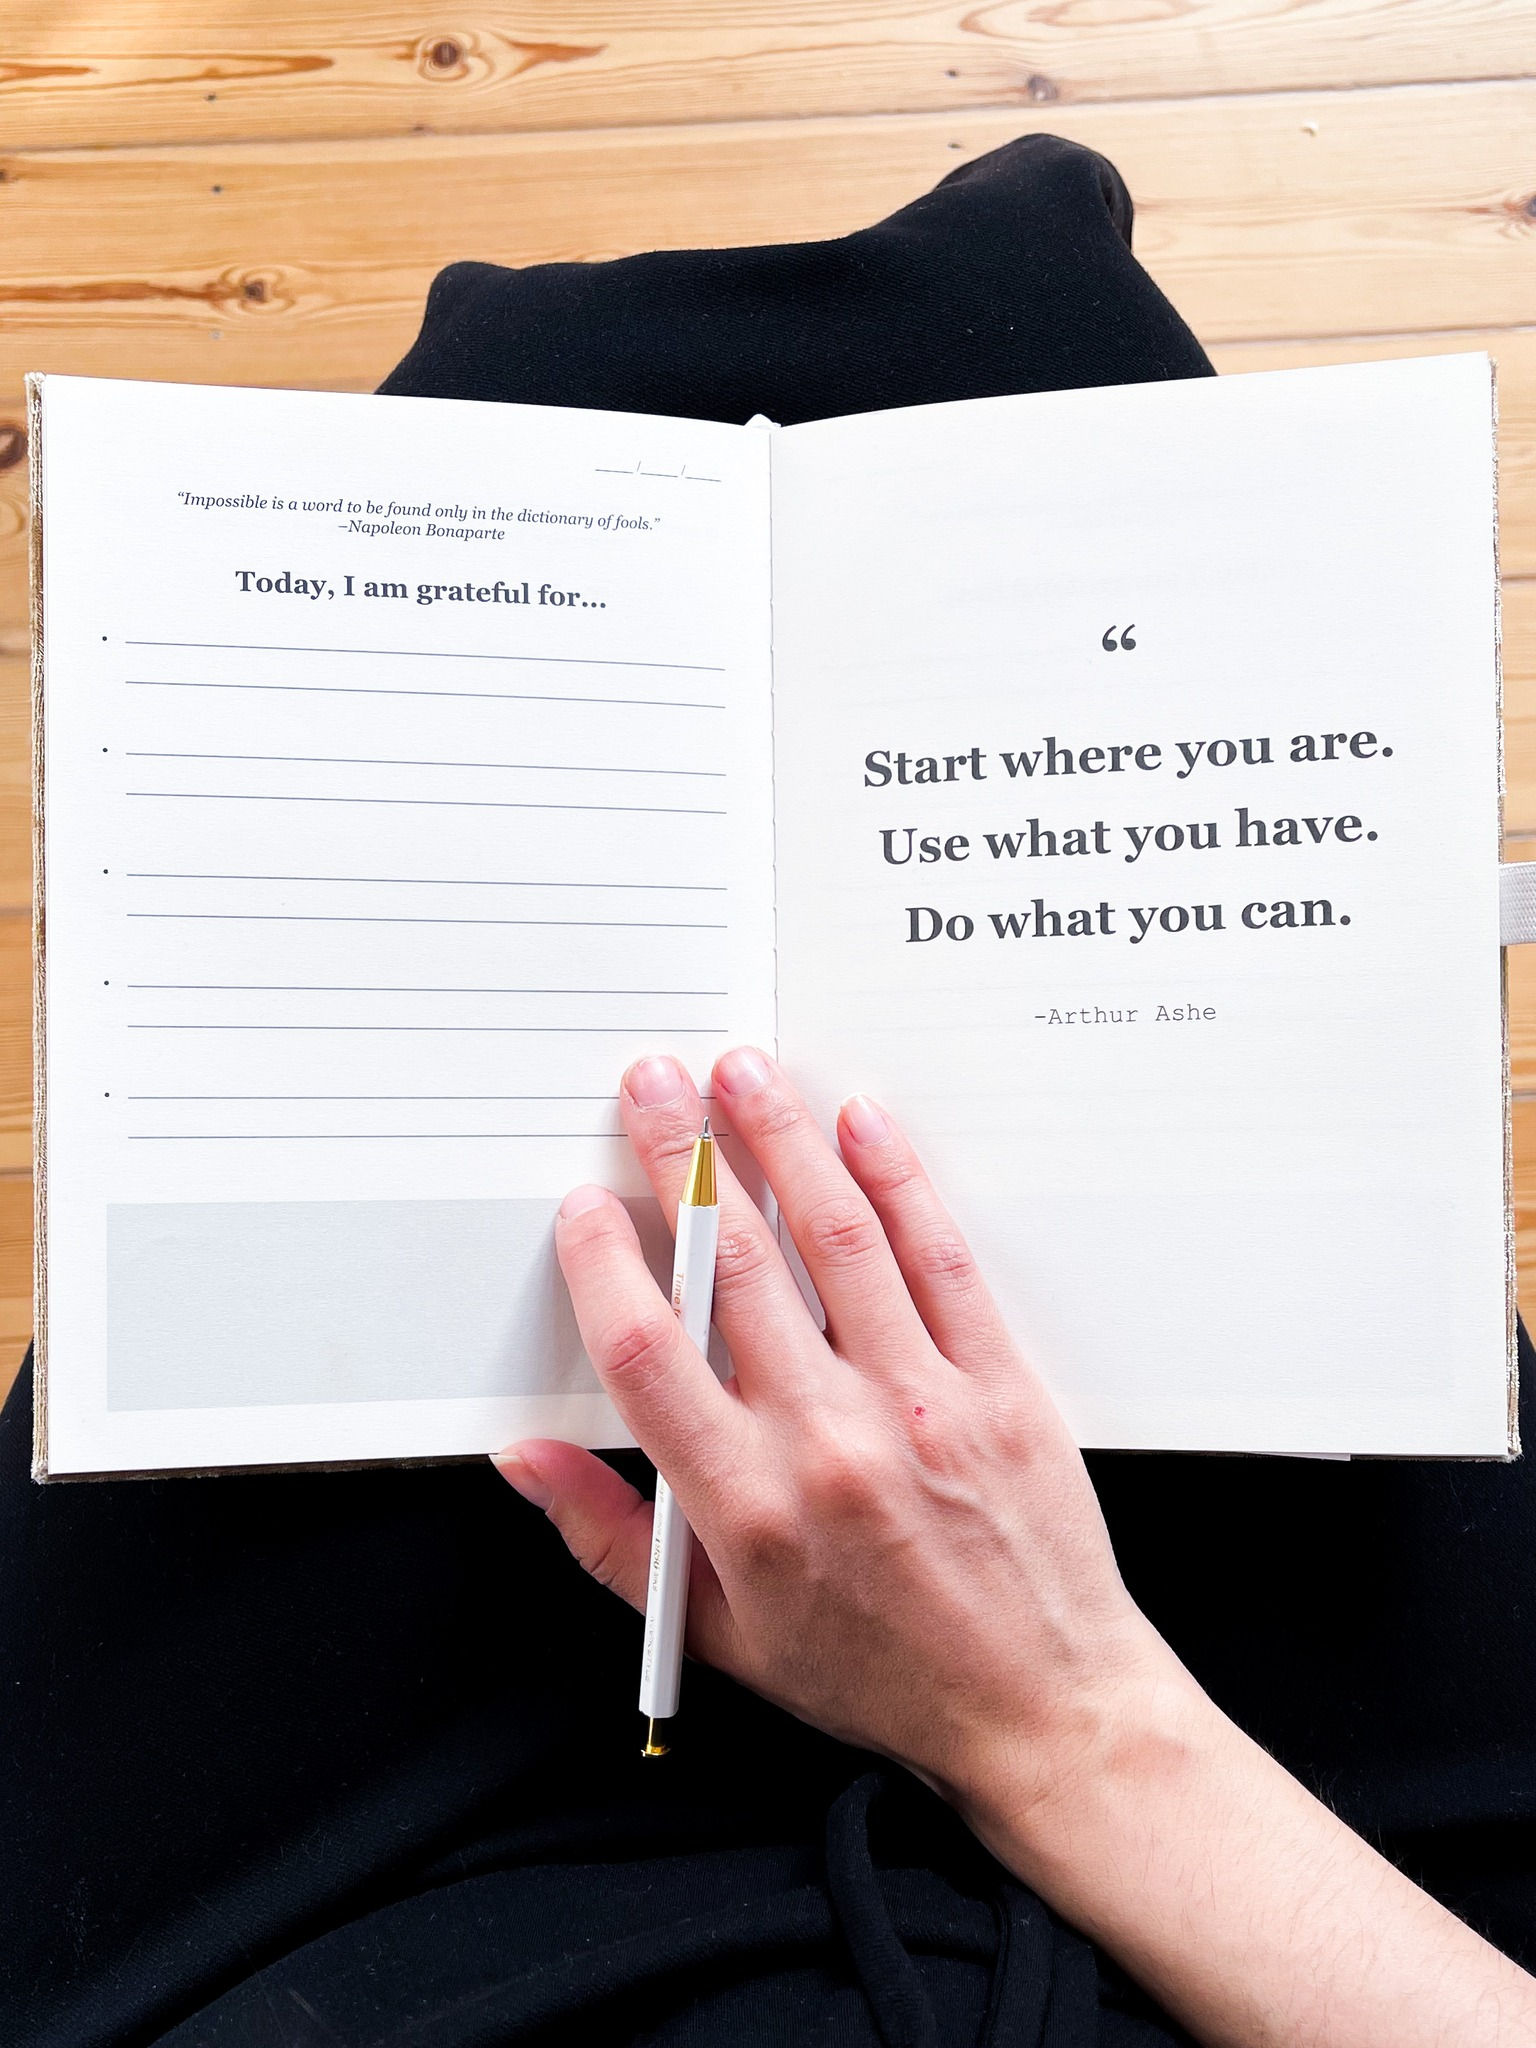 ____/____/____
“Impossible is a word to be found only in the dictionary of fools.”
–Napoleon Bonaparte
Today, I am grateful for...
“
Start where you are.
Use what you have.
Do what you can.
-Arthur Ashe
Time